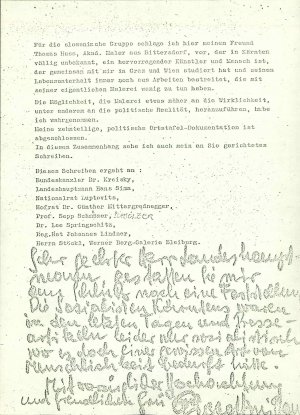 Für die slowenische Gruppe schlage ich hier meinen Freund
Thomas Hoos, Akad. Maler aus Sittersdorf, vor, der in Kärnten
völlig unbekannt, ein hervorragender Künstler und Mensch ist,
der gemeinsam mit mir in Graz und Wien studiert hat und seinen
Lebensunterhalt immer noch aus Arbeiten bestreitet, die mit
seiner eigentlichen Malerei wenig zu tun haben.
Die Möglichkeit, die Malerei etwas näher an die Wirklichkeit,
unter anderem an die politische Realität, heranzuführen, habe
ich wahrgenommen.
Meine mehrteilige, politische Ortstafel-Dokumentation ist
abgeschlossen.
In diesem Zusammenhang sehe ich auch mein an Sie gerichtetes
Schreiben.
Dieses Schreiben ergeht an :
Bundeskanzler Dr. Kreisky,
Landeshauptmann Hans Sima,
Nationalrat Luptowits,
Hofrat Dr. Günther Mittergradnegger,
Prof. Sepp
Dr. Leo Springschitz,
Reg.Rat Johannes Lindner,
Herrn Stöckl, Werner Berg-Galerie Bleiburg.
Sehr geehrter Herr Landeshaupt-
mann, gestatten Sie mir
zum Schluß noch eine Feststellung
Die Sozialisten Kärntens waren
in den letzten Tagen und Presse-
artikeln leider nur sozialistisch
wo es doch einer gewissen Art von
Menschlichkeit bedurft hätte.
Mit vorzüglicher Hochachtung
und freundlichem Gruß